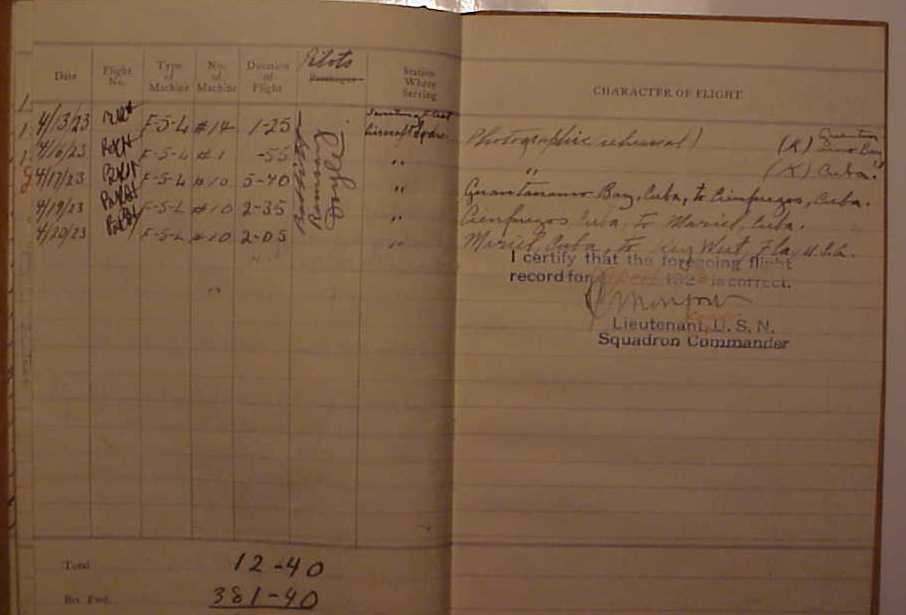 Pilots
Date Flight No. Type of Machine No. of Machine Duration of Flight Passenger Station Where Serving
CHARACTER OF FLIGHT
4/13/23 F-5-L #14 1-25 Photographic rehearsal (R) Bay
4/16/23 F-5-L #1 -55 " " (R) Cuba.
4/17/23 F-5-L #10 5-40 " Guantanamo Bay, Cuba, to Cienfuegos, Cuba.
4/19/23 F-5-L #10 2-35 " Cienfuegos Cuba, to Mariel, Cuba.
4/20/23 F-5-L #10 2-05 " Mariel, Cuba, to Key West Fla, U.S.A.
I certify that the foregoing flight
record for 192 is correct.
Lieutenant, U. S. N.
Squadron Commander
Total 12-40
Bro. Fwd. 381-40